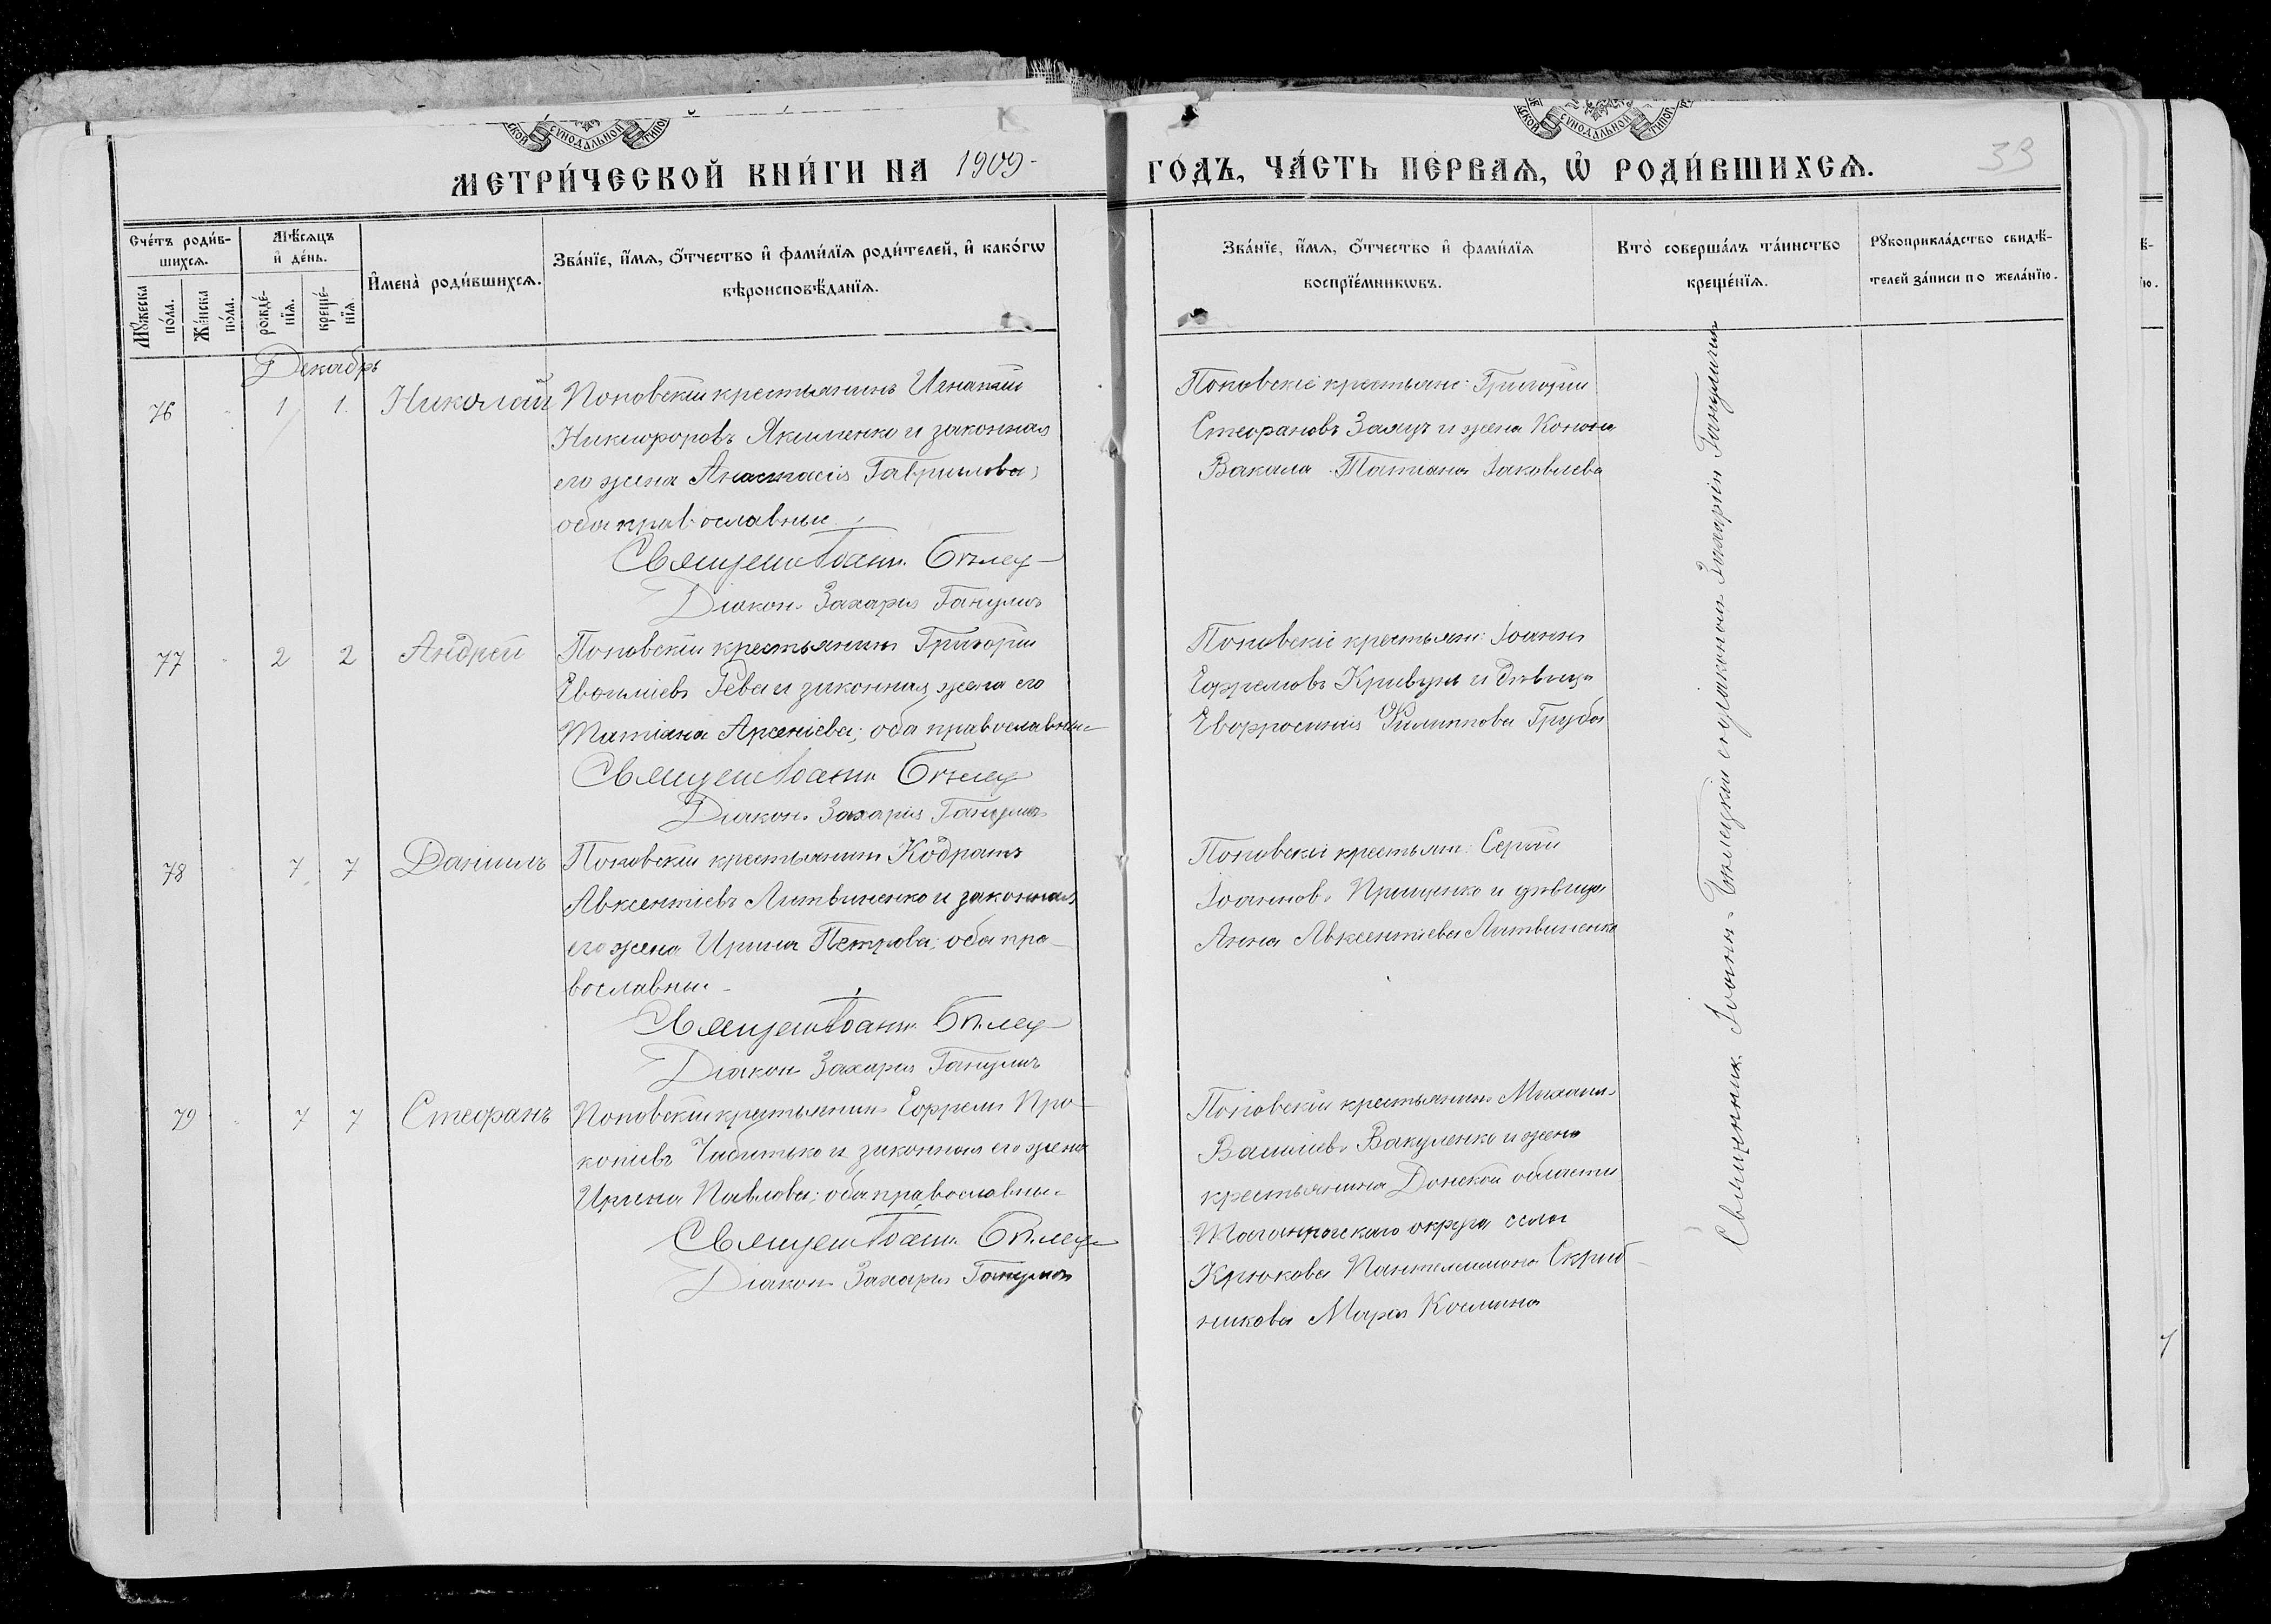 СУНОДАЛЬНОЙ
СУНОДАЛЬНОЙ
МЕТРИ́ЧЕСКОЙ КНИ́ГИ НА 1909
ГО́ДЪ, ЧА́СТЬ ПЕ́РВАѦ, Ѡ҆ РОДИ́ВШИХСѦ.
33
Сче́тъ роди́в-
шихсѧ.
Мꙋ́жеска
по́ла.
Же́нска
по́ла.
Мѣ́сѧцъ
и҆ де́нь.
рожде́-
нїѧ.
креще́-
нїѧ.
И҆мена̀ роди́вшихсѧ.
Зва́нїе, и҆́мѧ, ѻ҆́тчество и҆ фами́лїѧ роди́телей, и҆ како́гѡ
вѣроисповѣ́данїѧ.
Зва́нїе, и҆́мѧ, ѻ҆́тчество и҆ фами́лїѧ
воспрїе́мникѡвъ.
Кто̀ соверша́лъ та́инство
креще́нїѧ.
Рꙋкоприкла́дство свидѣ́-
телей за́писи по жела́нїю.
Декабрь
76
1
1
Николай
Поповскій крестьянинъ Игнатій
Никифоровъ Якименко и законная
его жена Анастасія Гаврилова;
оба православные
Священ Іоанн Бѣлец
Діакон Захарія Ганулич
Поповскіе крестьяне: Григорій
Стефановъ Заяцъ и жена Конона
Вакала Татіана Іаковлева
77
2
2
Андрей
Поповскій крестьянинъ Григорій
Евѳиміевъ Рева и законная жена его
Татіана Арсеніева; оба православные
Священ Іоанн Бѣлец
Діакон Захарія Ганулич
Поповскіе крестьяне: Іоаннъ
Ефремовъ Кривуля и дѣвица
Евфросинія Филиппова Груба
78
7
7
Даніилъ
Поповскій крестьянинъ Кодратъ
Авксентіевъ Литвиненко и законная
его жена Ирина Петрова; оба пра-
вославные
Священ Іоанн Бѣлец
Діакон Захарія Ганулич
Поповскіе крестьяне: Сергій
Іоанновъ Прищенко и дѣвица
Анна Авксентіева Литвиненко
79
7
7
Стефанъ
Поповскій крестьянинъ Ефремъ Про-
копіевъ Чабитько и законная его жена
Ирина Павлова; оба православные
Священ Іоанн Бѣлец
Діакон Захарія Ганулич
Поповскій крестьянинъ Михаилъ
Василіевъ Вакуленко и жена
крестьянина Донской области
Таганрогскаго округа села
Крюкова Пантелеимона Скриб-
никова Марѳа Космина
Священник Іоаннъ Бѣлецкій съ діакономъ Захаріею Гануличемъ